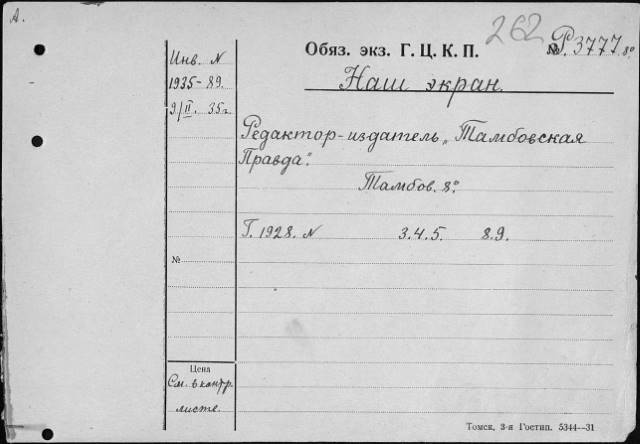 А.
262
Обяз. экз. Г. Ц. К. П. № Р. 3777. 8º
Наш экран.
Инв. N
1935-89.
9/II. 35г.
Редактор-издатель „Тамбовская
Правда".
Тамбов. 8º
Г. 1928. N 3.4.5. 8.9.
№
Цена
См. в контр.
листе.
Томск, 3-я Гостип. 5344—31